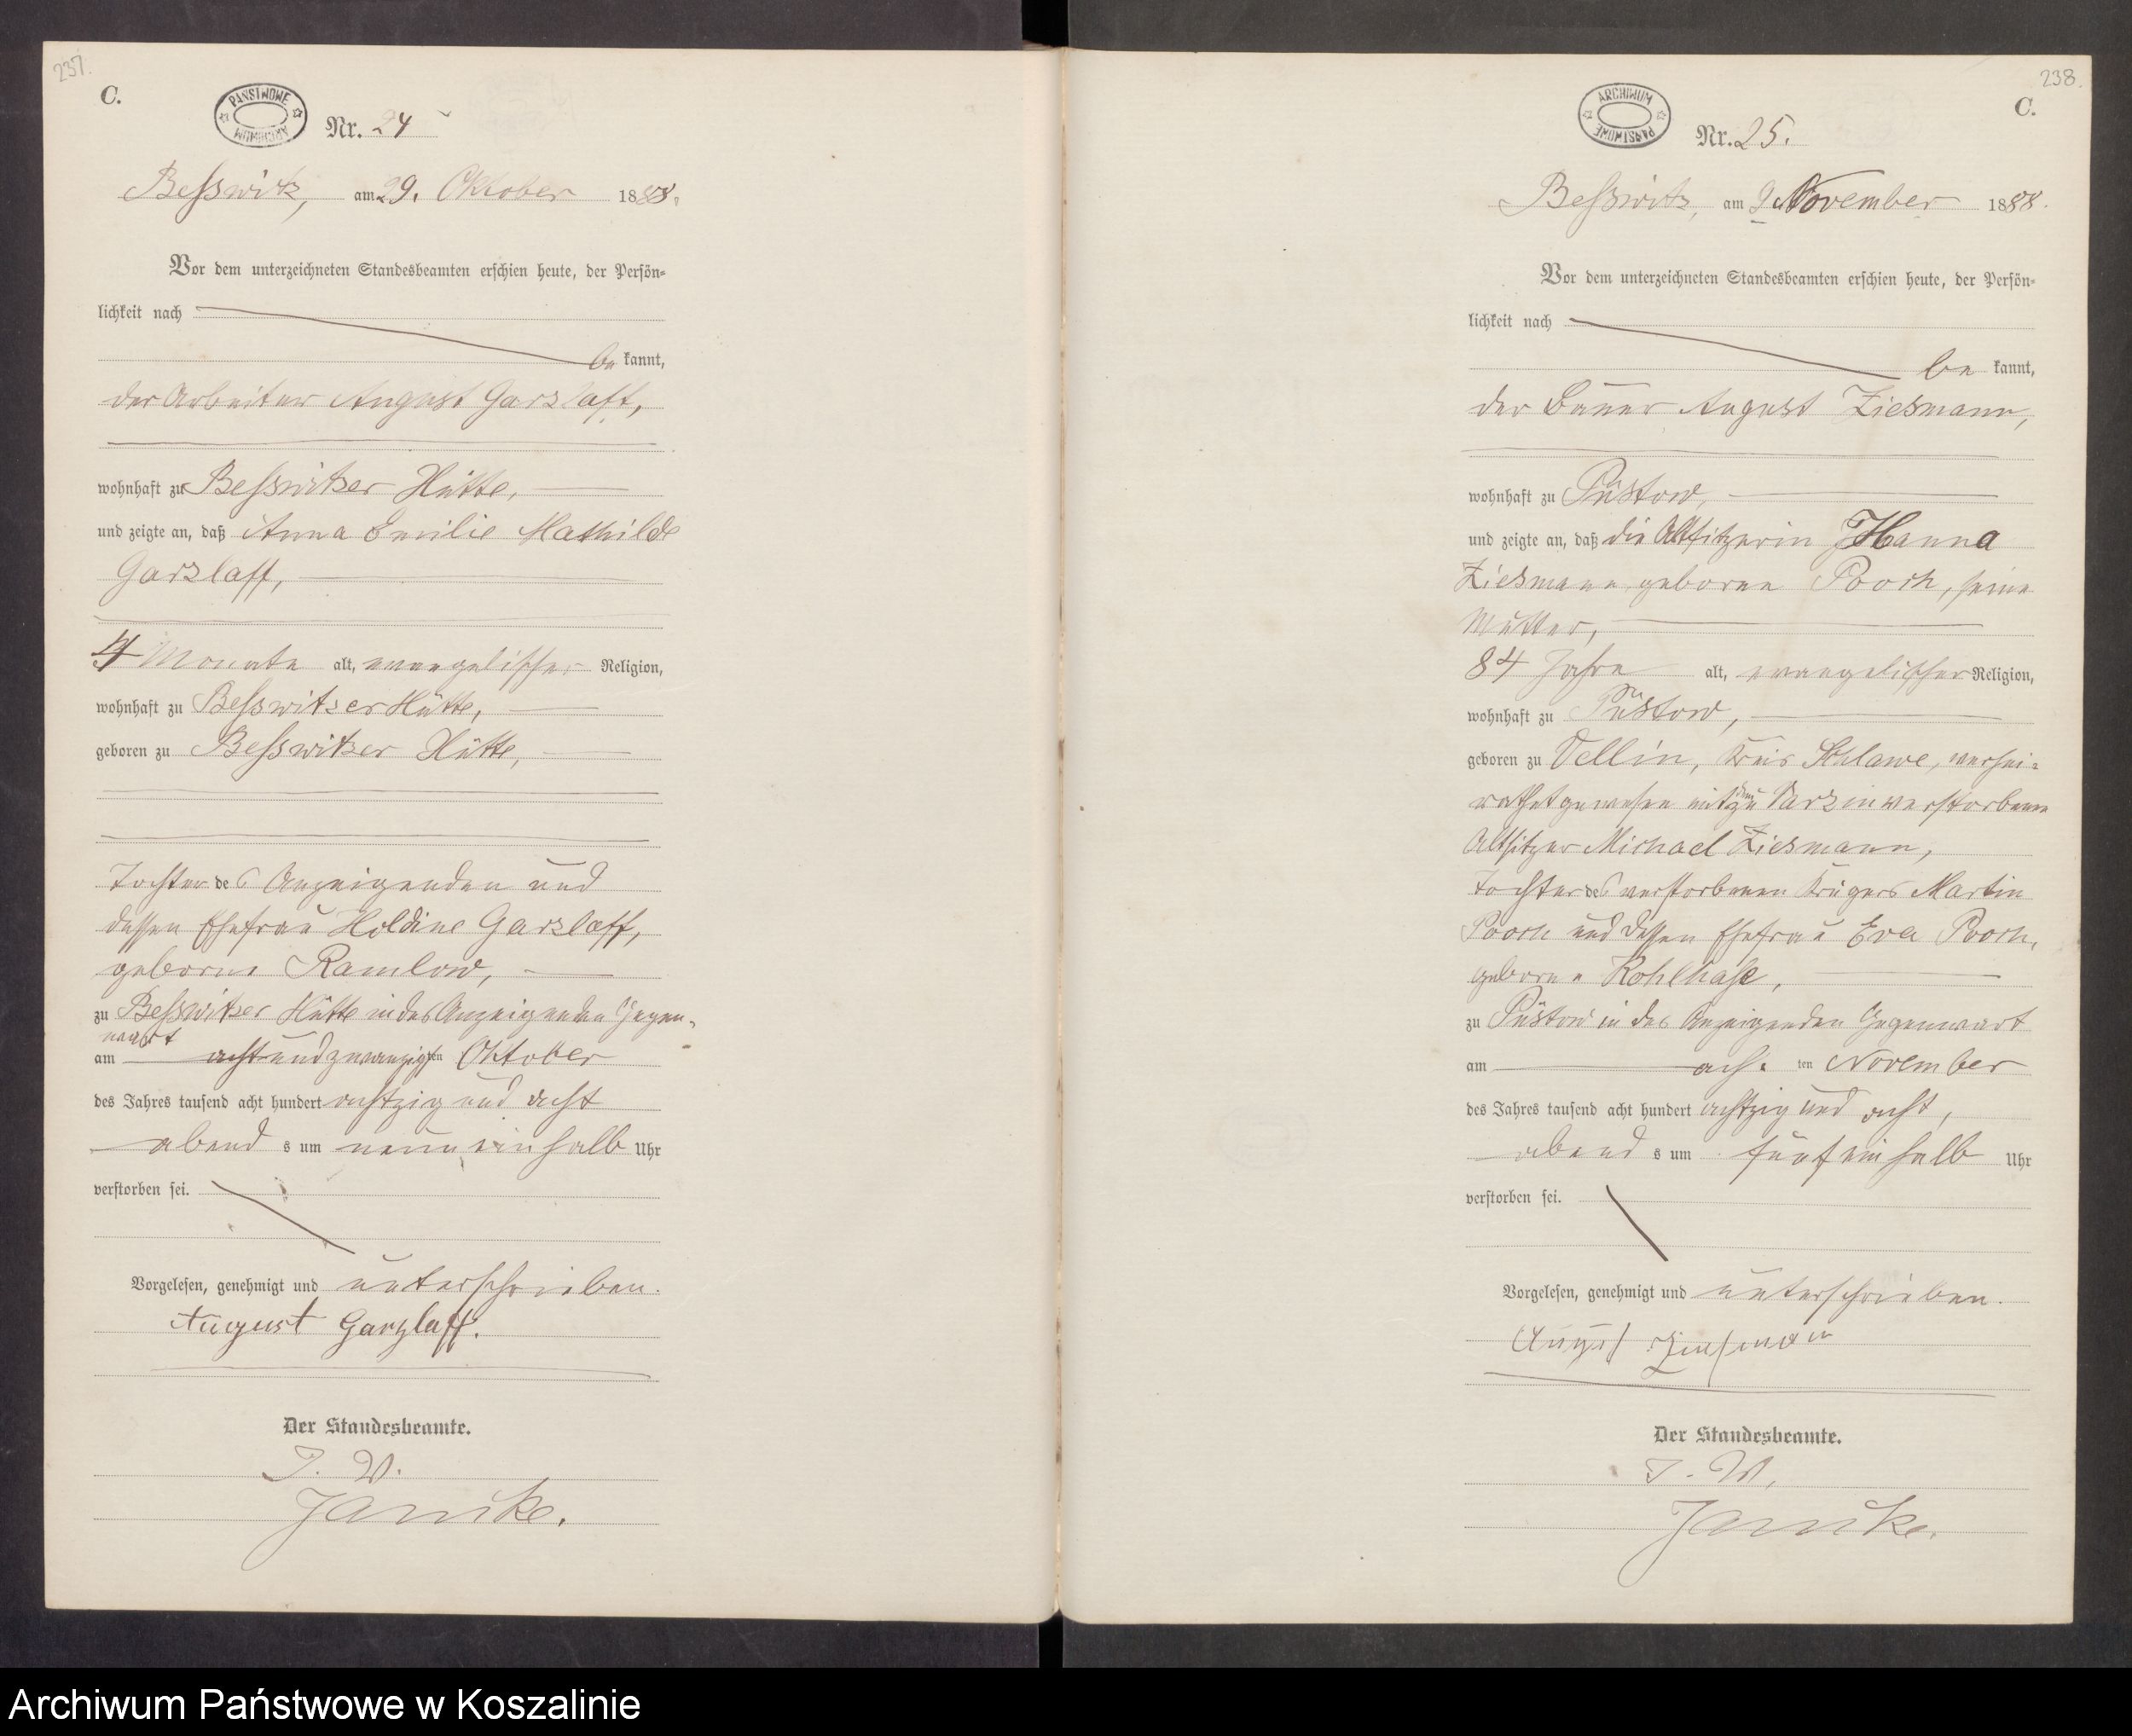 237.
C.
PAŃSTWOWE
ARCHIWUM
Nr. 24
Besswitz, am 29. Oktober 1888.
Vor dem unterzeichneten Standesbeamten erschien heute, der Persön-
lichkeit nach
be kannt,
der Arbeiter August Garzlaff,
wohnhaft zu Besswitzer Hütte,
und zeigte an, daß Anna Emilie Mathilde
Garzlaff,
4 Monate alt, evangelischer Religion,
wohnhaft zu Besswitzer Hütte,
geboren zu Besswitzer Hütte,
Tochter des Anzeigenden und
dessen Ehefrau Holdine Garzlaff,
geborne Ramlow,
zu Besswitzer Hütte in des Anzeigenden Gegen-
wart
am achtundzwanzigsten Oktober
des Jahres tausend acht hundert achtzig und acht
abend s um neun ein halb Uhr
verstorben sei.
Vorgelesen, genehmigt und unterschrieben.
August Garzlaff.
Der Standesbeamte.
J. V.
238.
C.
ARCHIWUM
PAŃSTWOWE
Nr. 25.
Besswitz, am 9 November 1888.
Vor dem unterzeichneten Standesbeamten erschien heute, der Persön-
lichkeit nach
be kannt,
der Bauer August Ziesmann,
wohnhaft zu Püstow,
und zeigte an, daß die Altsitzerin Hanna
Ziesmann geborne Pooch, seine
Mutter,
84 Jahre alt, evangelischer Religion,
wohnhaft zu Püstow,
geboren zu Vellin, Kreis Schlawe, verhei-
rathet gewesen mit dem zu Varzin verstorbenen
Altsitzer Michael Ziesmann,
Tochter des verstorbenen Krügers Martin
Pooch und dessen Ehefrau Eva Pooch,
geborne Kohlhase,
zu Püstow in des Anzeigenden Gegenwart
am ach ten November
des Jahres tausend acht hundert achtzig und acht,
abend s um fünf ein halb Uhr
verstorben sei.
Vorgelesen, genehmigt und unterschrieben.
August Ziesmann
Der Standesbeamte.
J. V.
Archiwum Państwowe w Koszalinie